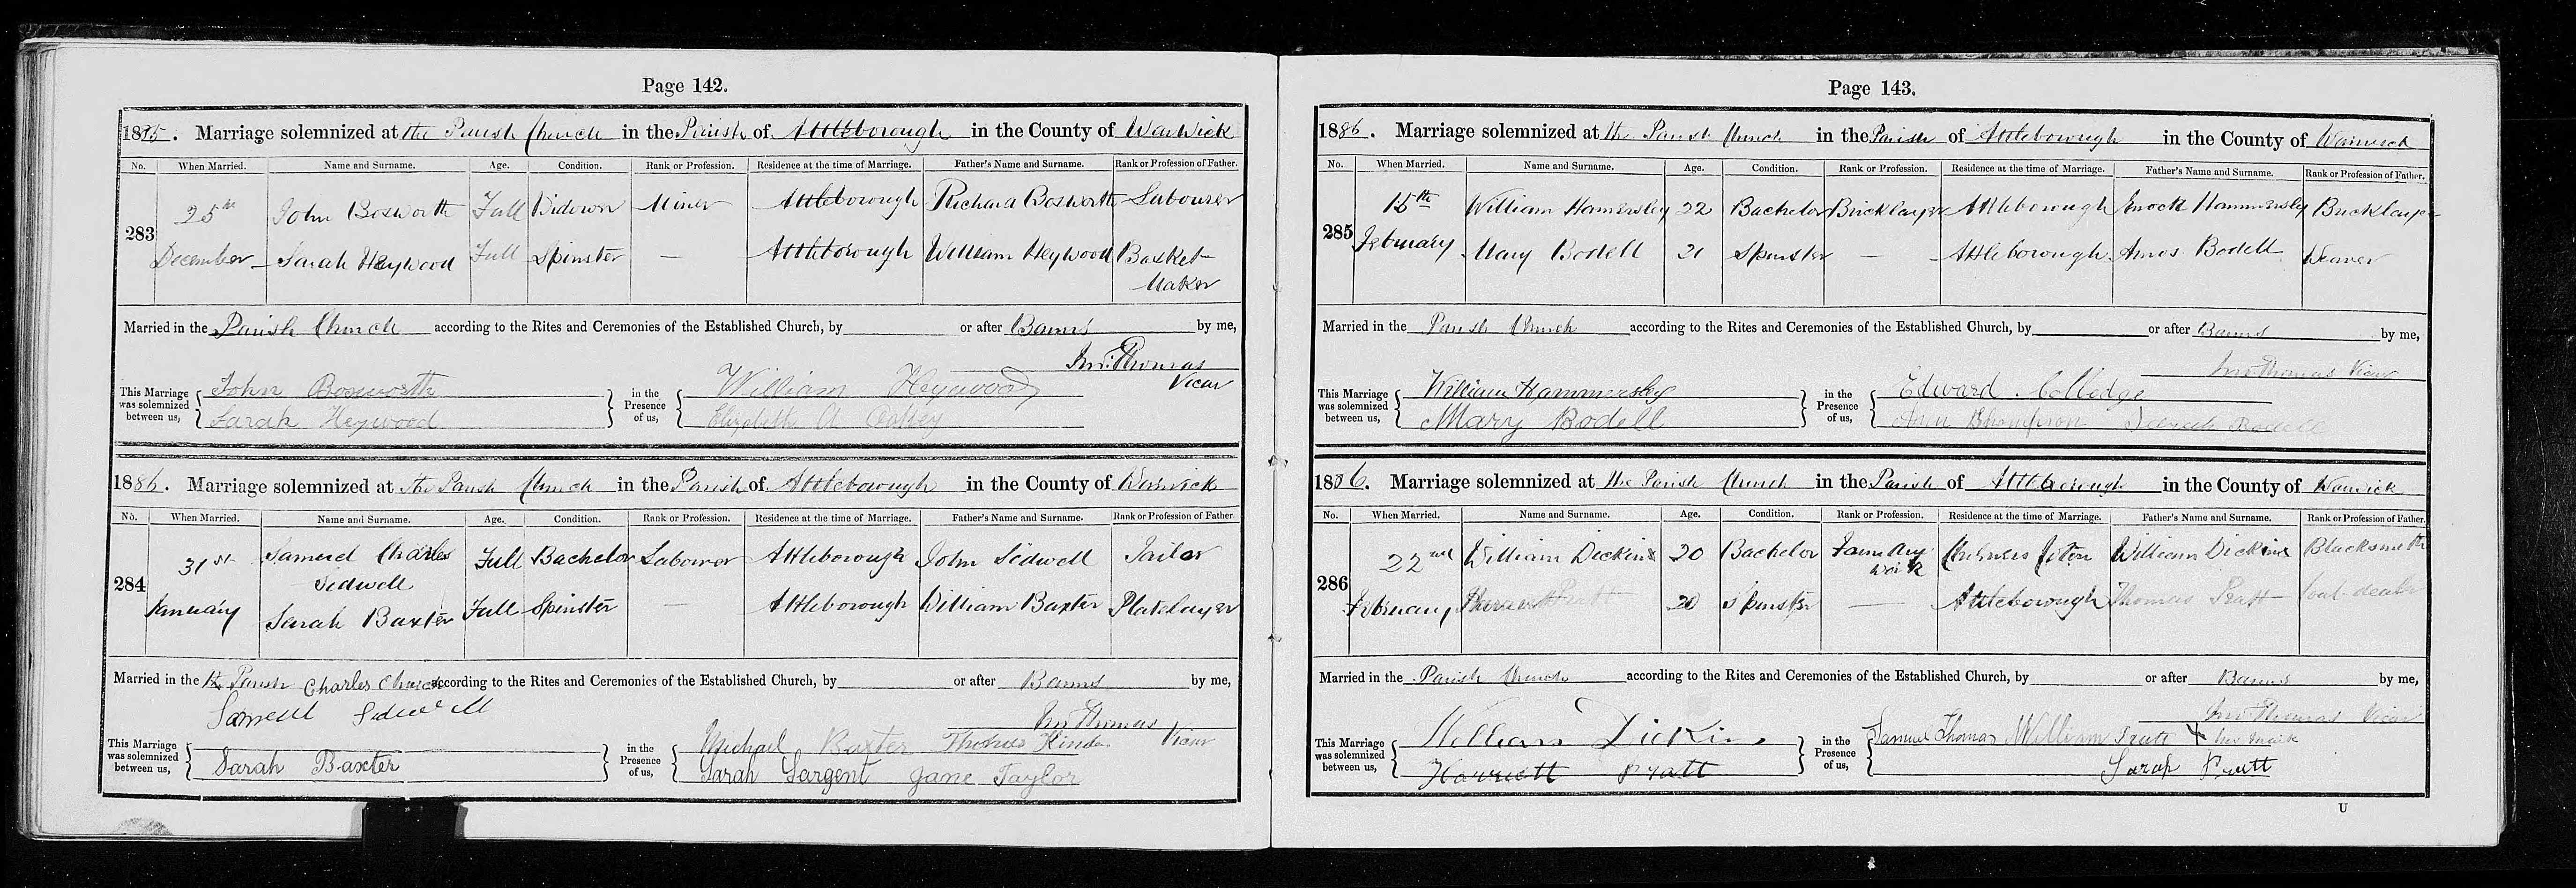 Page 142.
1885. Marriage solemnized at the Parish Church in the Parish of Attleborough in the County of Warwick
No. When Married. Name and Surname. Age. Condition. Rank or Profession. Residence at the time of Marriage. Father's Name and Surname. Rank or Profession of Father.
283 25th December John Bosworth Full Widower Miner Attleborough Richard Bosworth Labourer
Sarah Heywood Full Spinster — Attleborough William Heywood Basket Maker
Married in the Parish Church according to the Rites and Ceremonies of the Established Church, by or after Banns by me,
Jno: Thomas Vicar
This Marriage was solemnized between us, John Bosworth Sarah Heywood
in the Presence of us, William Heywood Elizabeth A
1886. Marriage solemnized at the Parish Church in the Parish of Attleborough in the County of Warwick
No. When Married. Name and Surname. Age. Condition. Rank or Profession. Residence at the time of Marriage. Father's Name and Surname. Rank or Profession of Father
284 31st January Samuel Charles Sidwell Full Bachelor Labourer Attleborough John Sidwell Tailor
Sarah Baxter Full Spinster — Attleborough William Baxter Platelayer
Married in the Parish Church according to the Rites and Ceremonies of the Established Church, by or after Banns by me,
Jno Thomas Vicar
This Marriage was solemnized between us, Samuel Charles Sidwell Sarah Baxter
in the Presence of us, Michael Baxter Thomas Sarah Sargent Jane Taylor
Page 143.
1886. Marriage solemnized at the Parish Church in the Parish of Attleborough in the County of Warwick
No. When Married. Name and Surname. Age. Condition. Rank or Profession. Residence at the time of Marriage. Father's Name and Surname. Rank or Profession of Father.
285 15th February William Hamersley 22 Bachelor Bricklayer Attleborough Enoch Hammersley Bricklayer
Mary Bodell 21 Spinster — Attleborough Amos Bodell Weaver
Married in the Parish Church according to the Rites and Ceremonies of the Established Church, by or after Banns by me,
Jno Thomas Vicar
This Marriage was solemnized between us, William Hammersley Mary Bodell
in the Presence of us, Edward Colledge Ann Bodell
1886. Marriage solemnized at the Parish Church in the Parish of Attleborough in the County of Warwick
No. When Married. Name and Surname. Age. Condition. Rank or Profession. Residence at the time of Marriage. Father's Name and Surname. Rank or Profession of Father.
286 22nd February William Dickins 20 Bachelor Chilvers Coton William Dickins Blacksmith
Pratt 20 Spinster — Attleborough Thomas Pratt Coal-dealer
Married in the Parish Church according to the Rites and Ceremonies of the Established Church, by or after Banns by me,
Jno Thomas Vicar
This Marriage was solemnized between us, William Dickins Harriett Pratt
in the Presence of us, Samuel Thomas William Pratt X his mark Sarah Pratt
U